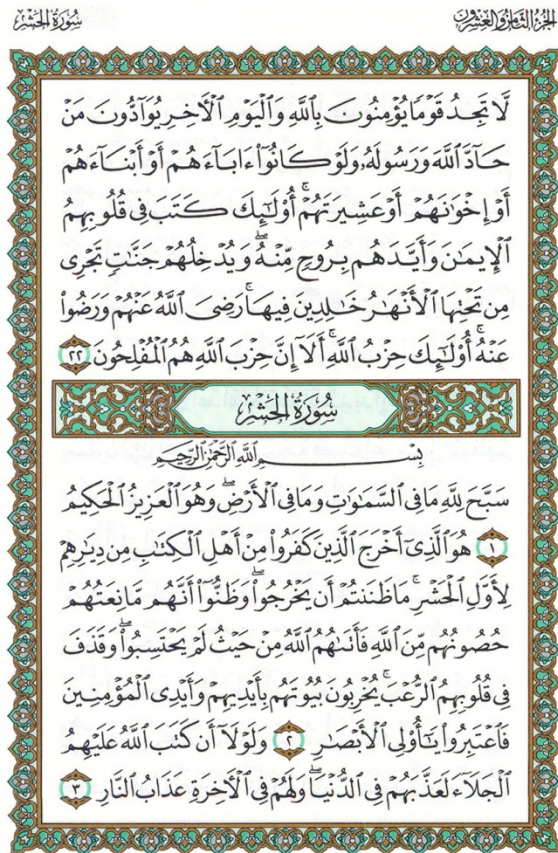 سُورَةُ الْحَشْرِ
الجُزْءُ الثَّامِنُ وَالعِشْرُونَ
لَّا تَجِدُ قَوْمًا يُؤْمِنُونَ بِٱللَّهِ وَٱلْيَوْمِ ٱلْأَخِرِ يُوَآدُّونَ مَنْ
حَآدَّ ٱللَّهَ وَرَسُولَهُۥ وَلَوْ كَانُوٓا۟ ءَابَآءَهُمْ أَوْ أَبْنَآءَهُمْ
أَوْ إِخْوَٰنَهُمْ أَوْ عَشِيرَتَهُمْ ۚ أُو۟لَٰٓئِكَ كَتَبَ فِى قُلُوبِهِمُ
ٱلْإِيمَٰنَ وَأَيَّدَهُم بِرُوحٍ مِّنْهُ ۖ وَيُدْخِلُهُمْ جَنَّٰتٍ تَجْرِى
مِن تَحْتِهَا ٱلْأَنْهَٰرُ خَٰلِدِينَ فِيهَا ۚ رَضِىَ ٱللَّهُ عَنْهُمْ وَرَضُوا۟
عَنْهُ ۚ أُو۟لَٰٓئِكَ حِزْبُ ٱللَّهِ ۚ أَلَآ إِنَّ حِزْبَ ٱللَّهِ هُمُ ٱلْمُفْلِحُونَ ٢٢
سُورَةُ الْحَشْرِ
بِسْمِ ٱللَّهِ ٱلرَّحْمَٰنِ ٱلرَّحِيمِ
سَبَّحَ لِلَّهِ مَا فِى ٱلسَّمَٰوَٰتِ وَمَا فِى ٱلْأَرْضِ ۖ وَهُوَ ٱلْعَزِيزُ ٱلْحَكِيمُ
١ هُوَ ٱلَّذِىٓ أَخْرَجَ ٱلَّذِينَ كَفَرُوا۟ مِنْ أَهْلِ ٱلْكِتَٰبِ مِن دِيَٰرِهِمْ
لِأَوَّلِ ٱلْحَشْرِ ۚ مَا ظَنَنتُمْ أَن يَخْرُجُوا۟ ۖ وَظَنُّوٓا۟ أَنَّهُم مَّانِعَتُهُمْ
حُصُونُهُم مِّنَ ٱللَّهِ فَأَتَىٰهُمُ ٱللَّهُ مِنْ حَيْثُ لَمْ يَحْتَسِبُوا۟ ۖ وَقَذَفَ
فِى قُلُوبِهِمُ ٱلرُّعْبَ ۚ يُخْرِبُونَ بُيُوتَهُم بِأَيْدِيهِمْ وَأَيْدِى ٱلْمُؤْمِنِينَ
فَٱعْتَبِرُوا۟ يَٰٓأُو۟لِى ٱلْأَبْصَٰرِ ٢ وَلَوْلَآ أَن كَتَبَ ٱللَّهُ عَلَيْهِمُ
ٱلْجَلَآءَ لَعَذَّبَهُمْ فِى ٱلدُّنْيَا ۖ وَلَهُمْ فِى ٱلْأَخِرَةِ عَذَابُ ٱلنَّارِ ٣